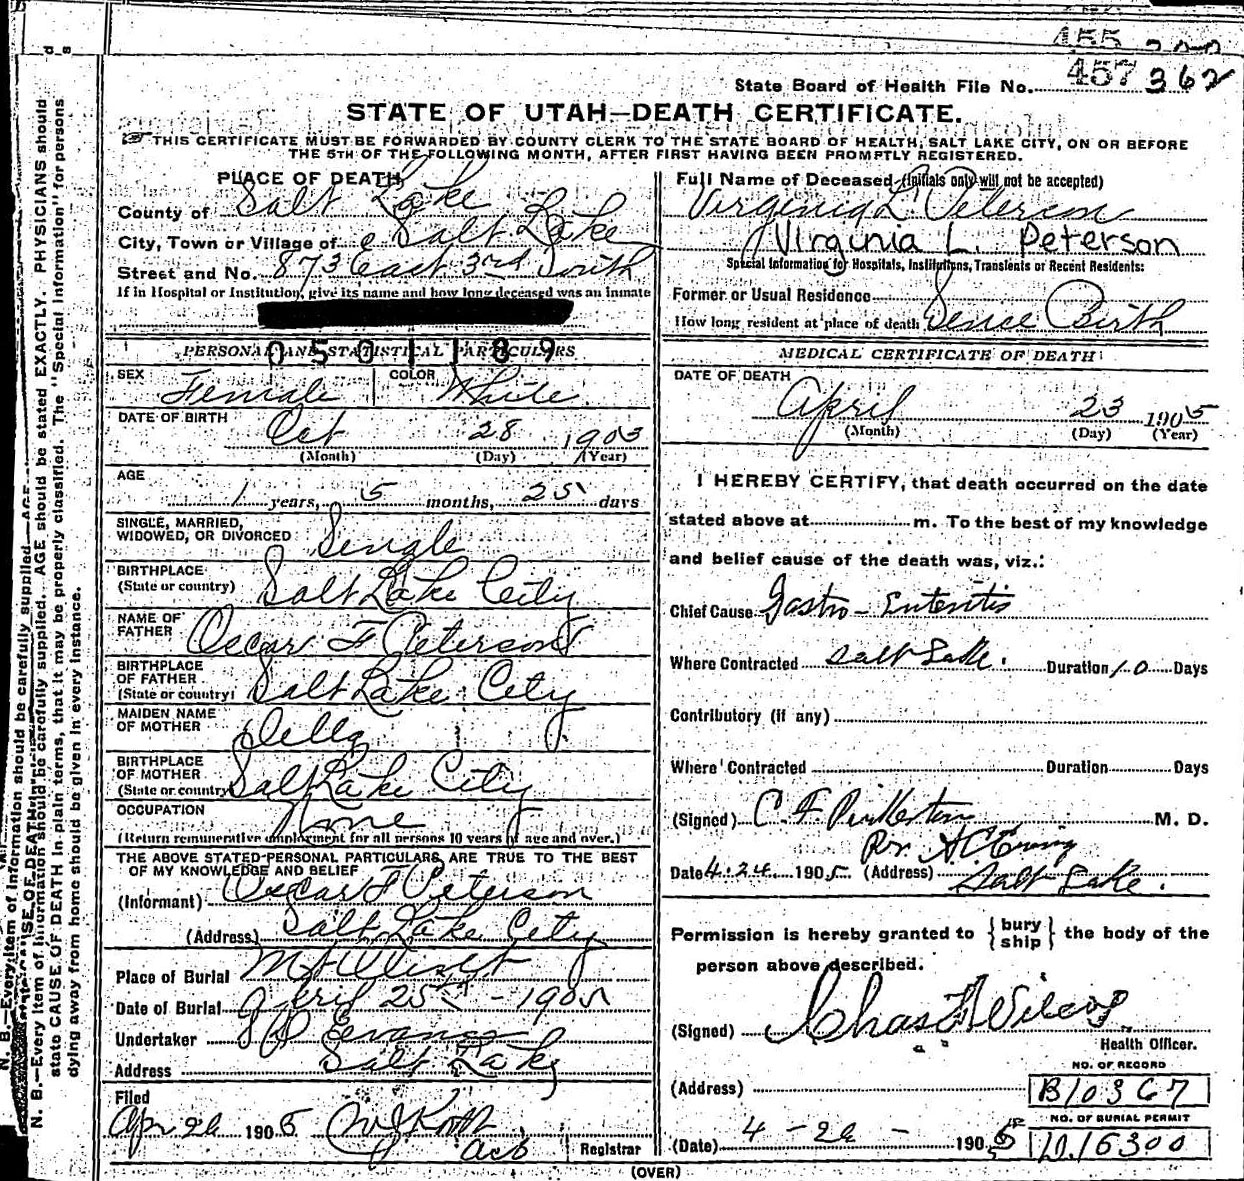 455
State Board of Health File No. 457 362
STATE OF UTAH—DEATH CERTIFICATE.
THIS CERTIFICATE MUST BE FORWARDED BY COUNTY CLERK TO THE STATE BOARD OF HEALTH, SALT LAKE CITY, ON OR BEFORE
THE 5TH OF THE FOLLOWING MONTH, AFTER FIRST HAVING BEEN PROMPTLY REGISTERED.
PLACE OF DEATH
County of Salt Lake
City, Town or Village of Salt Lake
Street and No. 873 East 3rd South
If in Hospital or Institution, give its name and how long deceased was an inmate
0501189
PERSONAL AND STATISTICAL PARTICULARS
SEX Female COLOR White
DATE OF BIRTH
Oct 28 1903
(Month) (Day) (Year)
AGE
1 years, 5 months, 25 days
SINGLE, MARRIED,
WIDOWED, OR DIVORCED Single
BIRTHPLACE
(State or country) Salt Lake City
NAME OF
FATHER Oscar F Peterson
BIRTHPLACE
OF FATHER
(State or country) Salt Lake City
MAIDEN NAME
OF MOTHER Della
BIRTHPLACE
OF MOTHER
(State or country) Salt Lake City
OCCUPATION None
(Return remunerative employment for all persons 10 years of age and over.)
THE ABOVE STATED PERSONAL PARTICULARS ARE TRUE TO THE BEST
OF MY KNOWLEDGE AND BELIEF
(Informant) Oscar F Peterson
(Address) Salt Lake City
Place of Burial Mt Olivet
Date of Burial April 25th - 1905
Undertaker Evans
Address Salt Lake
Filed
Apr 26 1905
Registrar
Full Name of Deceased (Initials only will not be accepted)
Virginia L. Peterson
Virginia L. Peterson
Special Information for Hospitals, Institutions, Transients or Recent Residents:
Former or Usual Residence
How long resident at place of death Sence Birth
MEDICAL CERTIFICATE OF DEATH
DATE OF DEATH
April 23 1905
(Month) (Day) (Year)
I HEREBY CERTIFY, that death occurred on the date
stated above at m. To the best of my knowledge
and belief cause of the death was, viz.:
Chief Cause Gastro-Enteritis
Where Contracted Salt Lake. Duration 10 Days
Contributory (if any)
Where Contracted Duration Days
(Signed) C. F. Pinkerton M. D.
Per
Date 4.24. 1905 (Address) Salt Lake.
Permission is hereby granted to {bury
ship} the body of the
person above described.
(Signed) Chas F Wilcox
Health Officer.
NO. OF RECORD
(Address) B10367
NO. OF BURIAL PERMIT
(Date) 4 - 26 - 1905 D.16300
(OVER)
N. B.—Every item of information should be carefully supplied. AGE should be stated EXACTLY. PHYSICIANS should
state CAUSE OF DEATH in plain terms, that it may be properly classified. The "Special Information" for persons
dying away from home should be given in every instance.